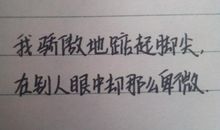 我骄傲地踮起脚尖,
在别人眼中却那么卑微.